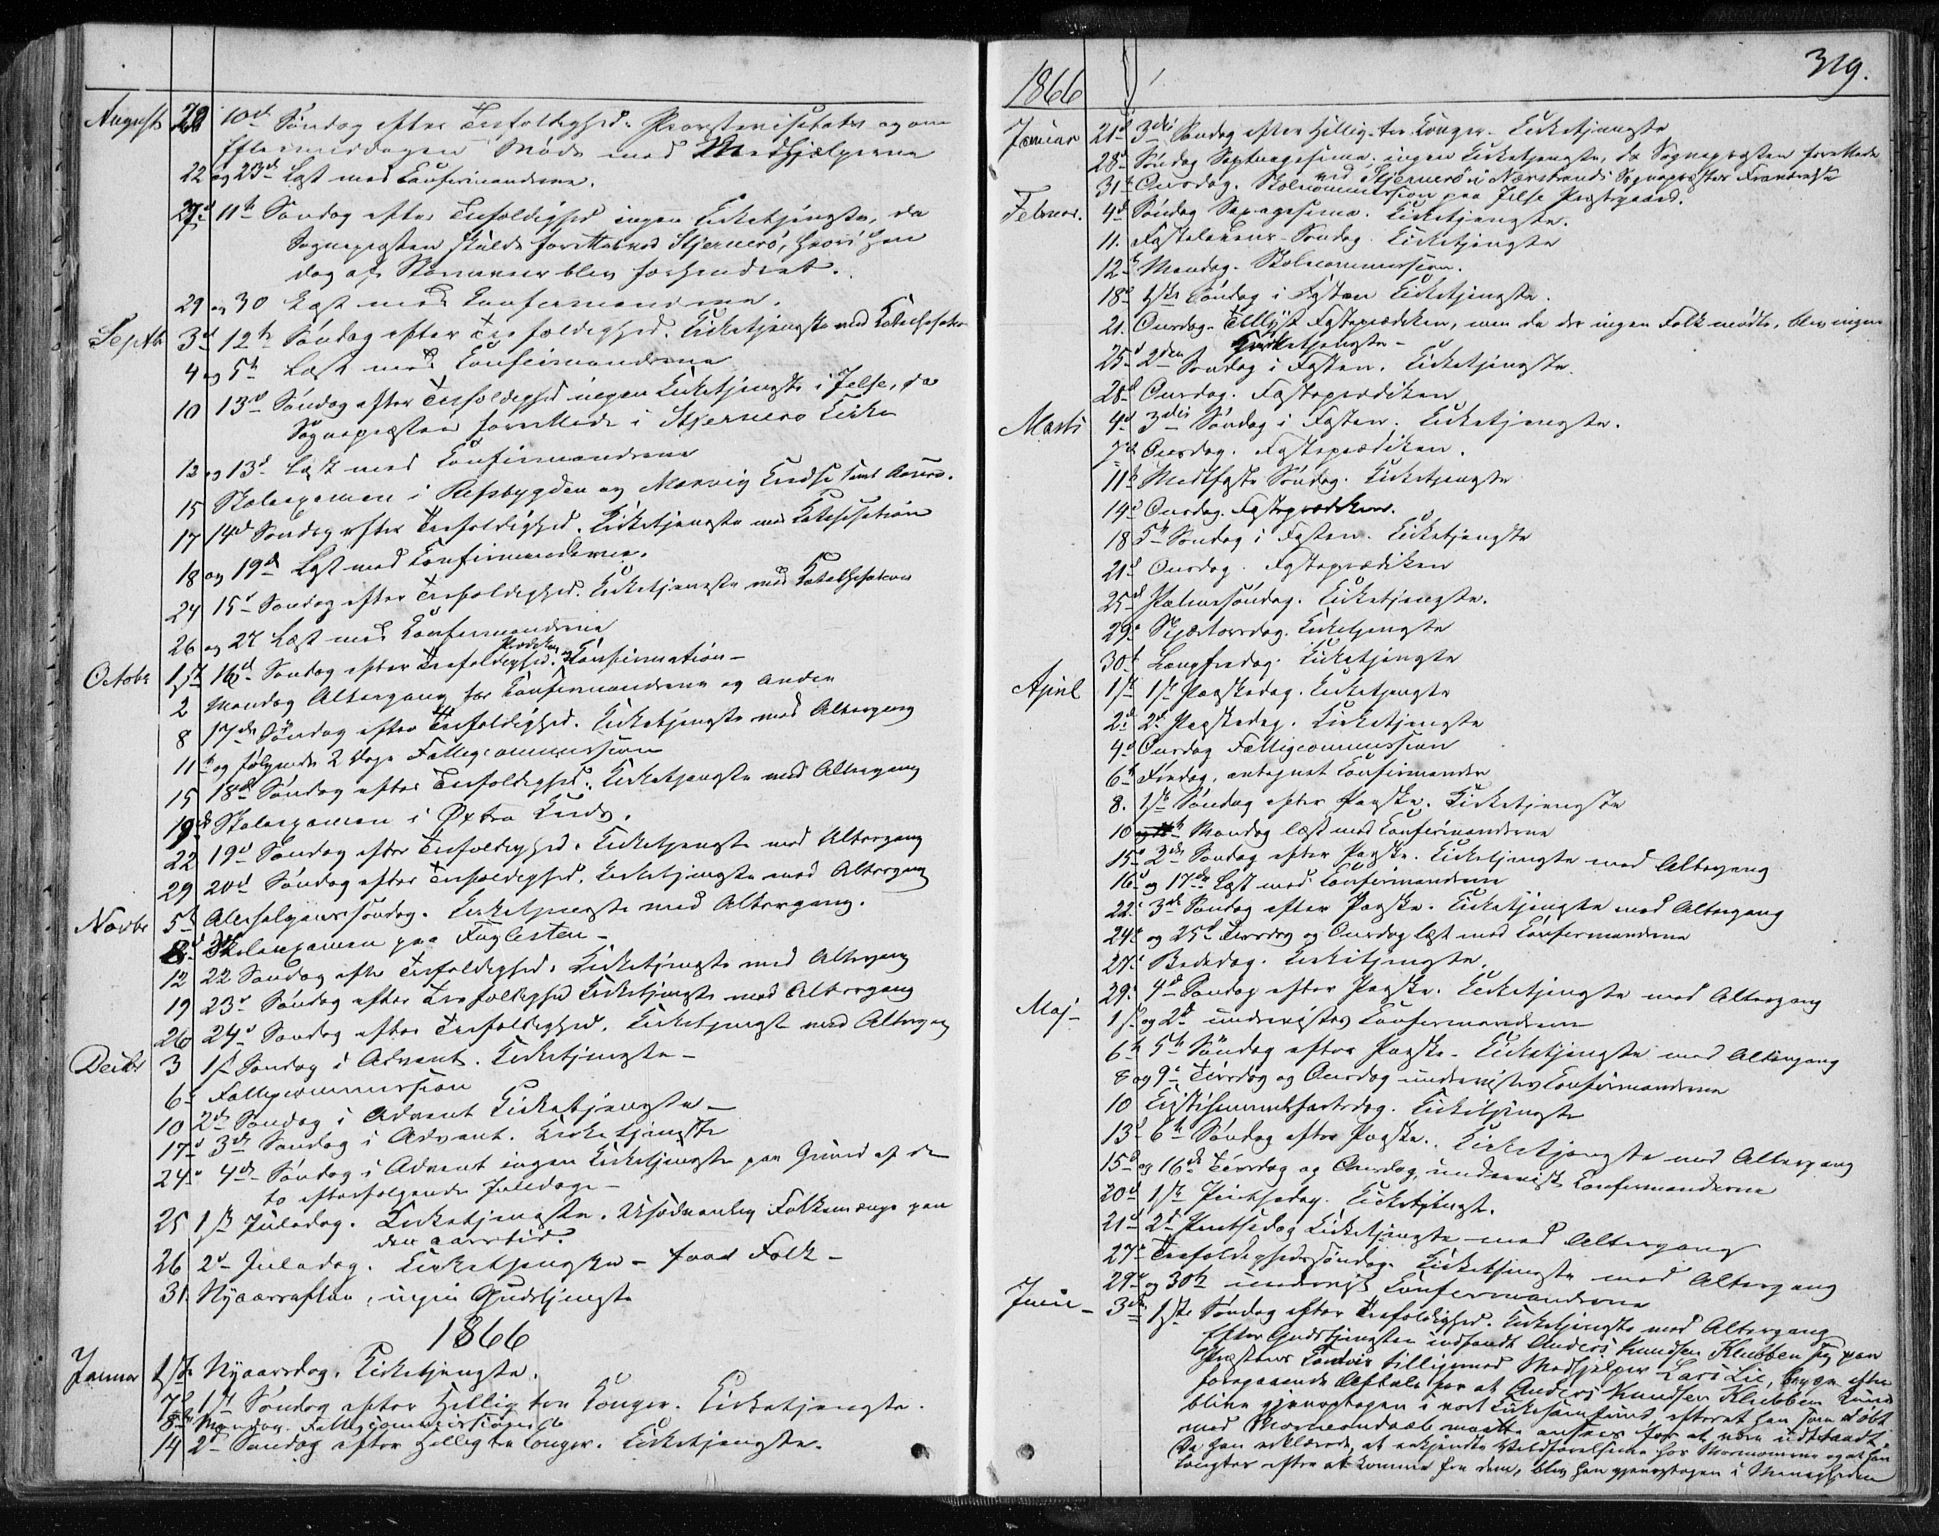 August 20 10d Søndag efter Trefoldighed. Provstevisitats og om
Eftermiddagen Møde med Medhjælperne
22 og 23d Læst med Confirmanderne.
27d 11te Søndag efter Trefoldighed ingen Kirketjeneste, da
Sognepræsten skulde forrettet ved Hjernerø, hvori han
dog af Stormveir blev forhindret.
29 og 30 Læst med Confirmanderne.
Septb 3d 12te Søndag efter Trefoldighed. Kirketjeneste med Katechisation
4 og 5te Læst med Confirmanderne
10 13d Søndag efter Trefoldighed ingen Kirketjeneste i Jelse, da
Sognepræsten forrettede i Hjernerø Kirke
12 og 13d Læst med Confirmanderne
15 Skoleexamen i Refsbygden og Marvig Kreds samt
17 14d Søndag efter Trefoldighed. Kirketjeneste med Katechisation
18 og 19d Læst med Confirmanderne.
24 15d Søndag efter Trefoldighed. Kirketjeneste med Katechisation
26 og 27 Læst med Confirmanderne
Octobr 1ste 16d Søndag efter Trefoldighed. Præken og Confirmation –
2 Mandag Altergang for Confirmanderne og Andre
8 17de Søndag efter Trefoldighed. Kirketjeneste med Altergang
11te og følgende 2 Dage Fattigcommission
15 18d Søndag efter Trefoldighed. Kirketjeneste med Altergang
19d Skoleexamen i Østre Kreds.
22 19d Søndag efter Trefoldighed. Kirketjeneste med Altergang
29 20d Søndag efter Trefoldighed. Kirketjeneste med Altergang
Novbr 5te Allehelgenssøndag. Kirketjeneste med Altergang.
8d Skoleexamen paa Foglesten –
12 22 Søndag efter Trefoldighed. Kirketjeneste med Altergang
19 23d Søndag efter Trefoldighed Kirketjeneste med Altergang
26 24d Søndag efter Trefoldighed. Kirketjenest med Altergang
Decbr 3 1ste Søndag i Advent. Kirketjeneste –
6te Fattigcommission
10 2d Søndag i Advent Kirketjeneste –
17d 3de Søndag i Advent. Kirketjeneste
24d 4de Søndag i Advent ingen Kirketjeneste paa Grund af de
to efterfølgende Juledage –
25 1ste Juledag. Kirketjeneste. Usædvanlig Folkemængde paa
den Aarstid.
26 2d Juledag. Kirketjeneste – faa Folk –
31. Nyaarsaften, ingen Gudstjeneste
1866
Januar 1ste Nyaarsdag. Kirketjeneste.
7d 1ste Søndag efter Hellig tre Konger. Kirketjeneste.
8de Mandag. Fattigcommission
14 2d Søndag efter Hellig tre Konger. Kirketjeneste.
319.
1866
Januar 21d 3die Søndag efter Hellig tre Konger. Kirketjeneste
28d Søndag Septuagesima. ingen Kirketjeneste, da Sognepræsten forrettede
ved Hjernerø i Nærstrands Sognepræstes Fraværelse
31te Onsdag. Skolecommission paa Jelse Præstegaard.
Februar. 4d Søndag Sexagesima. Kirketjeneste.
11. Fastelavens Søndag. Kirketjeneste
12te Mandag. Skolecommission.
18d 1ste Søndag i Fasten Kirketjeneste.
21. Onsdag. Tillyst Fastepræken, men da der ingen Folk mødte, blev ingen
Kirketjeneste –
25d 2den Søndag i Fasten. Kirketjeneste.
28d Onsdag. Fasteprædiken
Marts 4d 3die Søndag i Fasten. Kirketjeneste.
7de Onsdag. Fasteprædiken.
11te Midtfaste Søndag. Kirketjeneste
14d Onsdag. Fasteprædiken.
18 5te Søndag i Fasten. Kirketjeneste
21d Onsdag. Fasteprædiken
25d Palmesøndag. Kirketjeneste.
29d Skjærtorsdag. Kirketjeneste
30te Langfredag. Kirketjeneste
April 1ste 1ste Paaskedag. Kirketjeneste
2d 2d Paaskedag. Kirketjeneste
4d Onsdag Fattigcommission
6te Fredag, antegnet Confirmander
8. 1ste Søndag efter Paaske. Kirketjeneste
10 Mandag læst med Confirmanderne
15d 2de Søndag efter Paaske. Kirketjeneste med Altergang
16d og 17de Læst med Confirmanderne
22d 3de Søndag efter Paaske. Kirketjeneste med Altergang
24d og 25d Tirsdag og Onsdag læst med Confirmanderne
27d Bededag. Kirketjeneste.
29d 4de Søndag efter Paaske. Kirketjeneste med Altergang
Maj – 1ste og 2d undervistes Confirmanderne
6te 5te Søndag efter Paaske. Kirketjeneste med Altergang
8 og 9d Tirsdag og Onsdag undervistes Confirmanderne
10 Christi himmelfartsdag. Kirketjeneste
13d 6te Søndag efter Paaske. Kirketjeneste med Altergang
15d og 16de Tirsdag og Onsdag, undervist Confirmanderne
20d 1ste Pintsedag. Kirketjenest.
21d 2d Pintsedag Kirketjeneste – med Altergang
27d Trefoldighedssøndag. Kirketjeneste med Altergang
29d og 30te undervist Confirmanderne
Juni – 3de 1ste Søndag efter Trefoldighed. Kirketjeneste med Altergang
Efter Gudstjenesten indfandt Anders Knudsen Klubben sig paa
Præstens Contoir tilligemed Medhjelper Lars Lie, begge efter
foregaaende Aftale for at Anders Knudsen Klubben kunde
blive gjenoptagen i vort Kirkesamfund, efterat han som døbt
med Mormondaab maatte ansees for at være udtraadt.
Da han erklærede, at erkjendte Vildfarelserne hos Mormonerne og at han
længtes efter at komme fra dem, blev han gjenoptagen i Menigheden